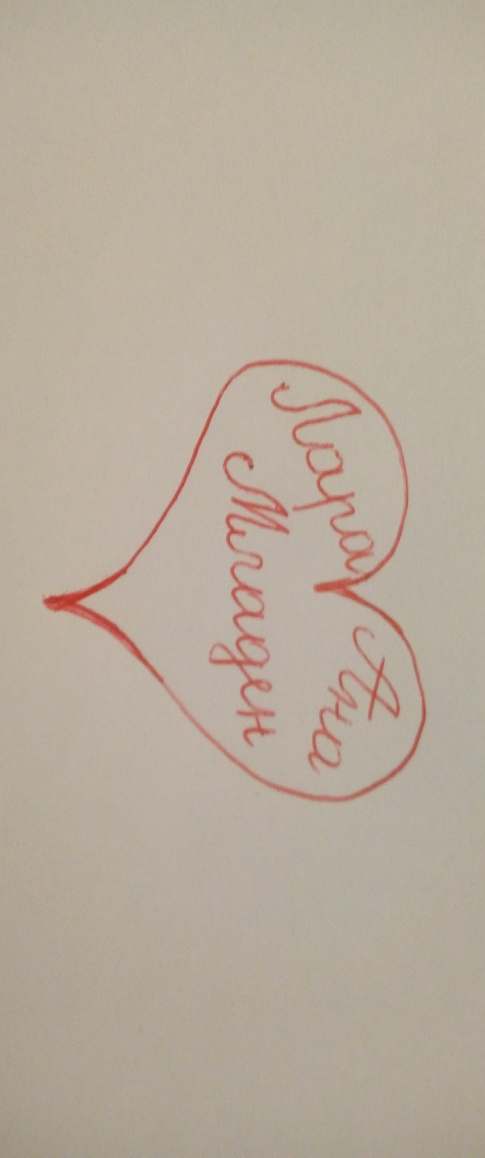 Лара Ана
Младен